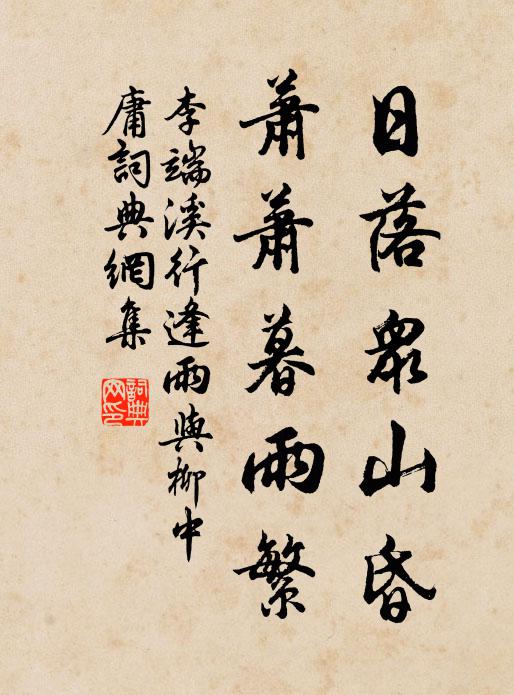 日落眾山昏
蕭蕭暮雨繁
李端溪行逢雨與柳中
庸詞典網集
詞典
网印